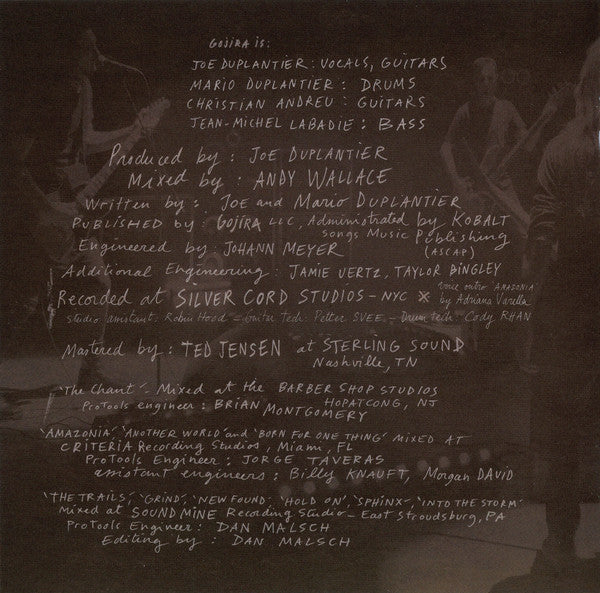 GOJIRA is:
JOE DUPLANTIER: VOCALS, GUITARS
MARIO DUPLANTIER: DRUMS
CHRISTIAN ANDREU: GUITARS
JEAN-MICHEL LABADIE: BASS
Produced by: JOE DUPLANTIER
Mixed by: ANDY WALLACE
Written by: JOE and MARIO DUPLANTIER
PUBLISHED by: GOJIRA LLC, Administrated by KOBALT
Songs Music Publishing
(ASCAP)
Engineered by: JOHANN MEYER
Additional Engineering: JAMIE UERTZ, TAYLOR BINGLEY
Recorded at SILVER CORD STUDIOS - NYC × voice outro AMAZONIA
by Adriana Varella
Studio assistant: Robin Hood - Guitar tech: Petter SVEE - Drum tech: Cody RHAN
Mastered by: TED JENSEN at STERLING SOUND
Nashville, TN
"The Chant" - Mixed at the BARBER SHOP STUDIOS
HOPATCONG, NJ
ProTools engineer: BRIAN MONTGOMERY
"AMAZONIA", "ANOTHER WORLD" and "BORN FOR ONE THING" MIXED AT
CRITERIA Recording Studios, Miami, FL
ProTools Engineer: JORGE TAVERAS
assistant engineers: Billy KNAUFT, Morgan DAVID
"THE TRAILS", "GRIND", "NEW FOUND", "HOLD ON", "SPHINX", "INTO THE STORM"
Mixed at SOUNDMINE Recording Studio - East Stroudsburg, PA
ProTools Engineer: DAN MALSCH
Editing by: DAN MALSCH